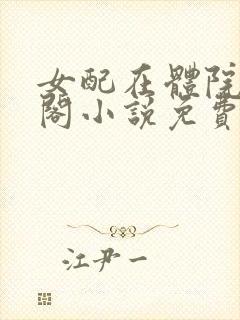 女配在體院
閣小說免費
江尹一